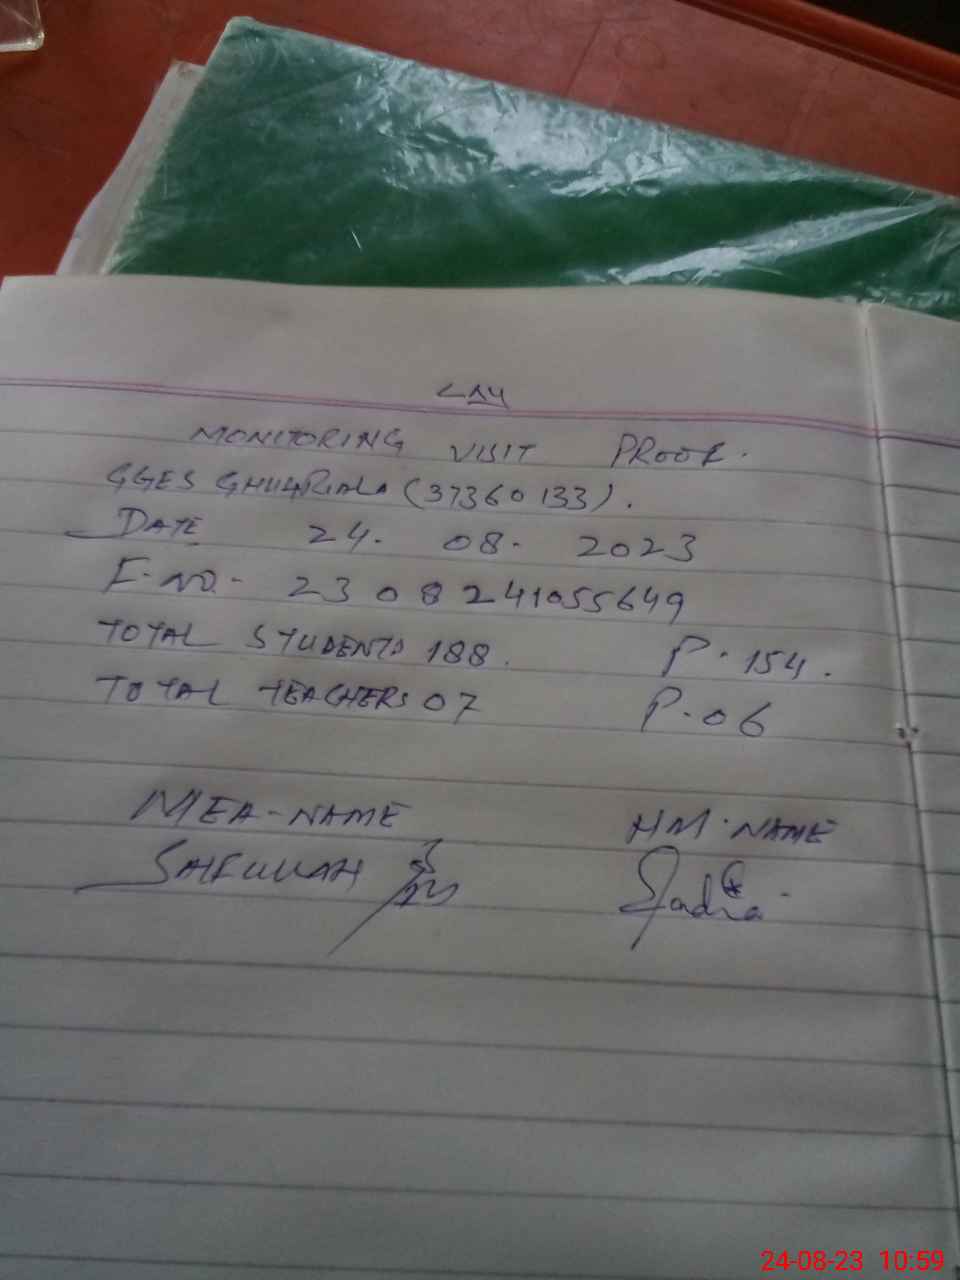 MONITORING VISIT PROOF.
GGES GHUGRIALA (37360133).
DATE 24. 08. 2023
E-NO. 2308241055649
TOTAL STUDENTS 188. P. 154.
TOTAL TEACHERS 07 P. 06
MEA-NAME HM. NAME
SAFULLAH Sadia
24-08-23 10:59